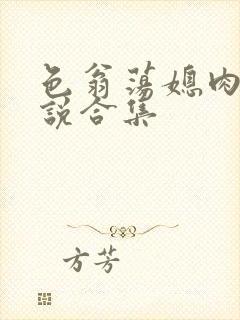 色翁荡媳肉
说合集
方芳